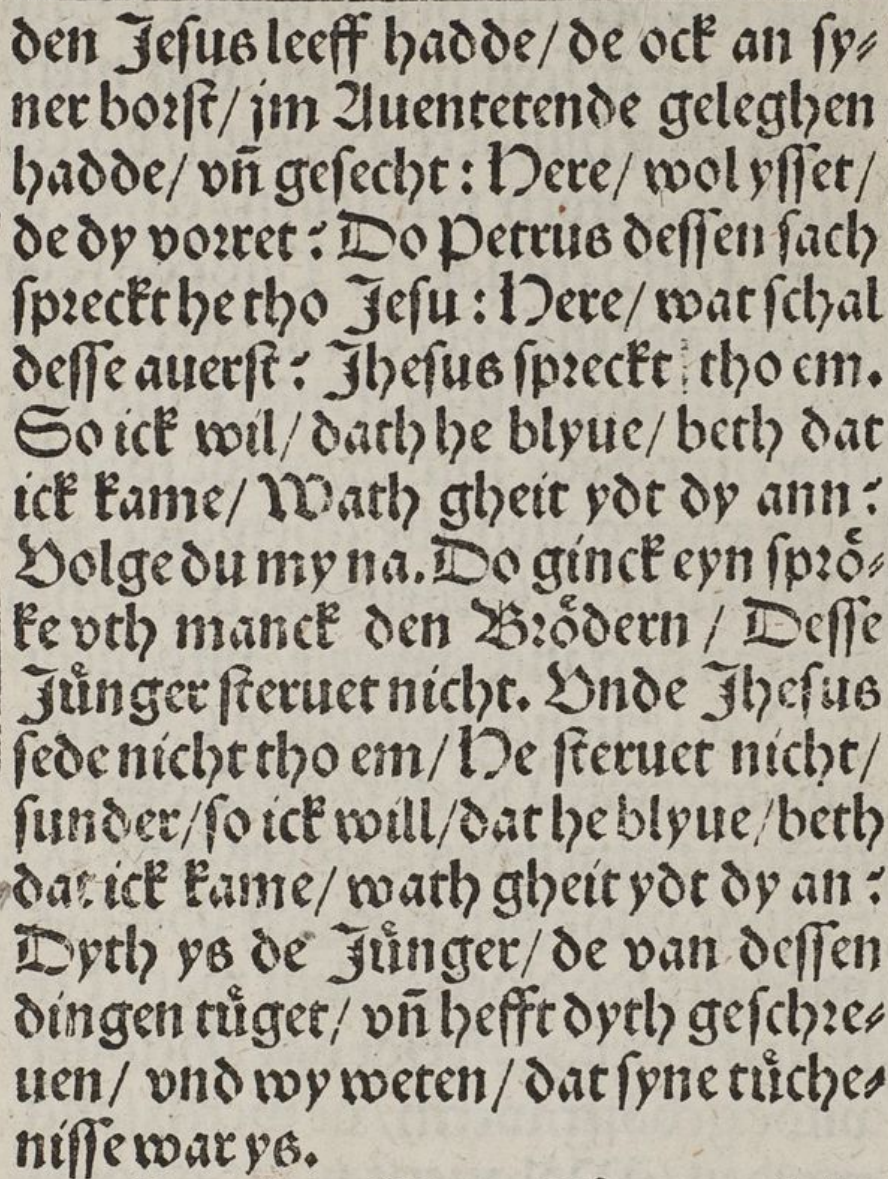 den Jesus leeff hadde/ de ock an sy⸗
ner borst/ jm Auentetende geleghen
hadde/ vñ gesecht: Here/ wol ysset/
de dy vorret? Do Petrus dessen sach
spreckt he tho Jesu: Here/ wat schal
desse auerst? Jhesus spreckt tho em.
So ick wil/ dath he blyue/ beth dat
ick kame/ Wath gheit ydt dy ann?
Volge du my na. Do ginck eyn sproͤ⸗
ke vth manck den Broͤdern / Desse
Juͤnger steruet nicht. Vnde Jhesus
sede nicht tho em/ He steruet nicht/
sunder/ so ick will/ dat he blyue/ beth
dat ick kame/ wath gheit ydt dy an?
Dyth ys de Juͤnger/ de van dessen
dingen tuͤget/ vñ hefft dyth geschre⸗
uen/ vnd wy weten/ dat syne tuͤche⸗
nisse war ys.